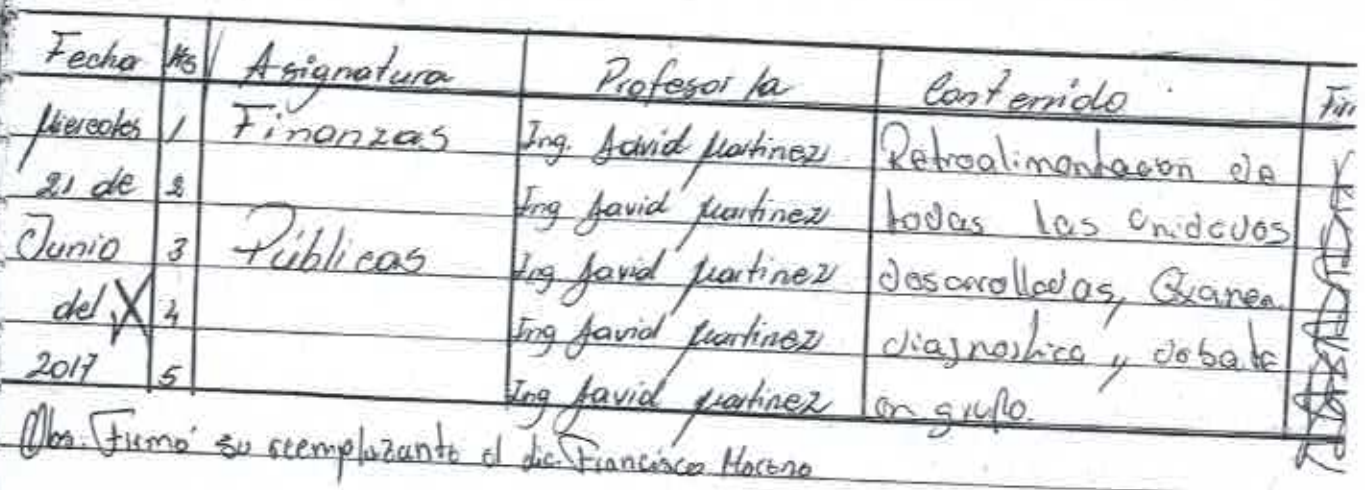 Fecha Hs Asignatura Profesor/a Contenido Fir
Miercoles 1 Finanzas Ing. David Martinez Retroalimentacion de
21 de 2 Ing David Martinez todas las Unidades
Junio 3 Públicas Ing David Martinez desarrolladas, Examen
del 4 Ing David Martinez diagnostica y debate
2017 5 Ing David Martinez en grupo.
Obs. Firmó su reemplazante el Lic. Francisco Moreno